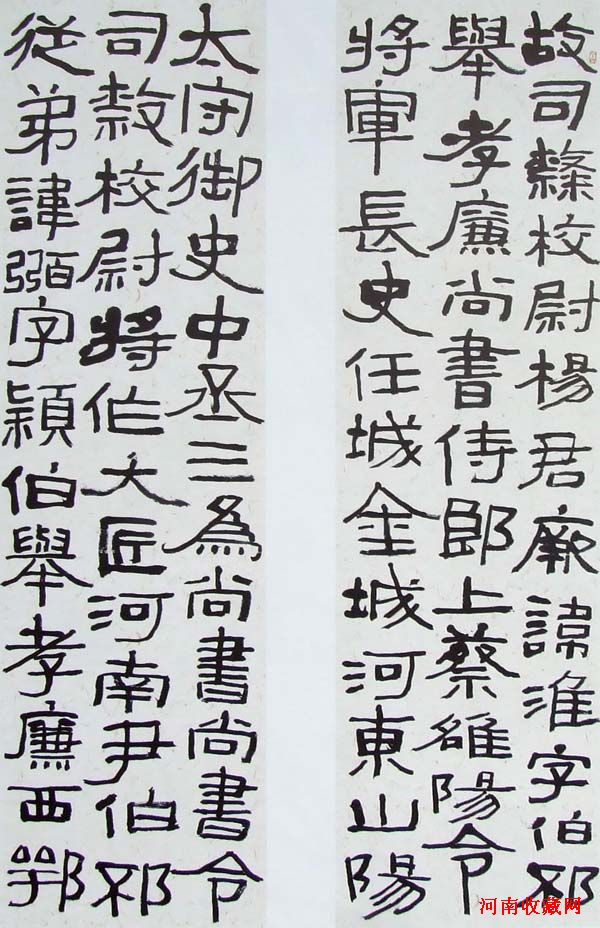 故司隸校尉楊君厥諱淮字伯邳
舉孝廉尚書侍郎上蔡雒陽令
將軍長史任城金城河東山陽
太守御史中丞三爲尚書尚書令
司隸校尉將作大匠河南尹伯邳
従弟諱弼字穎伯舉孝廉西鄂
河南收藏网